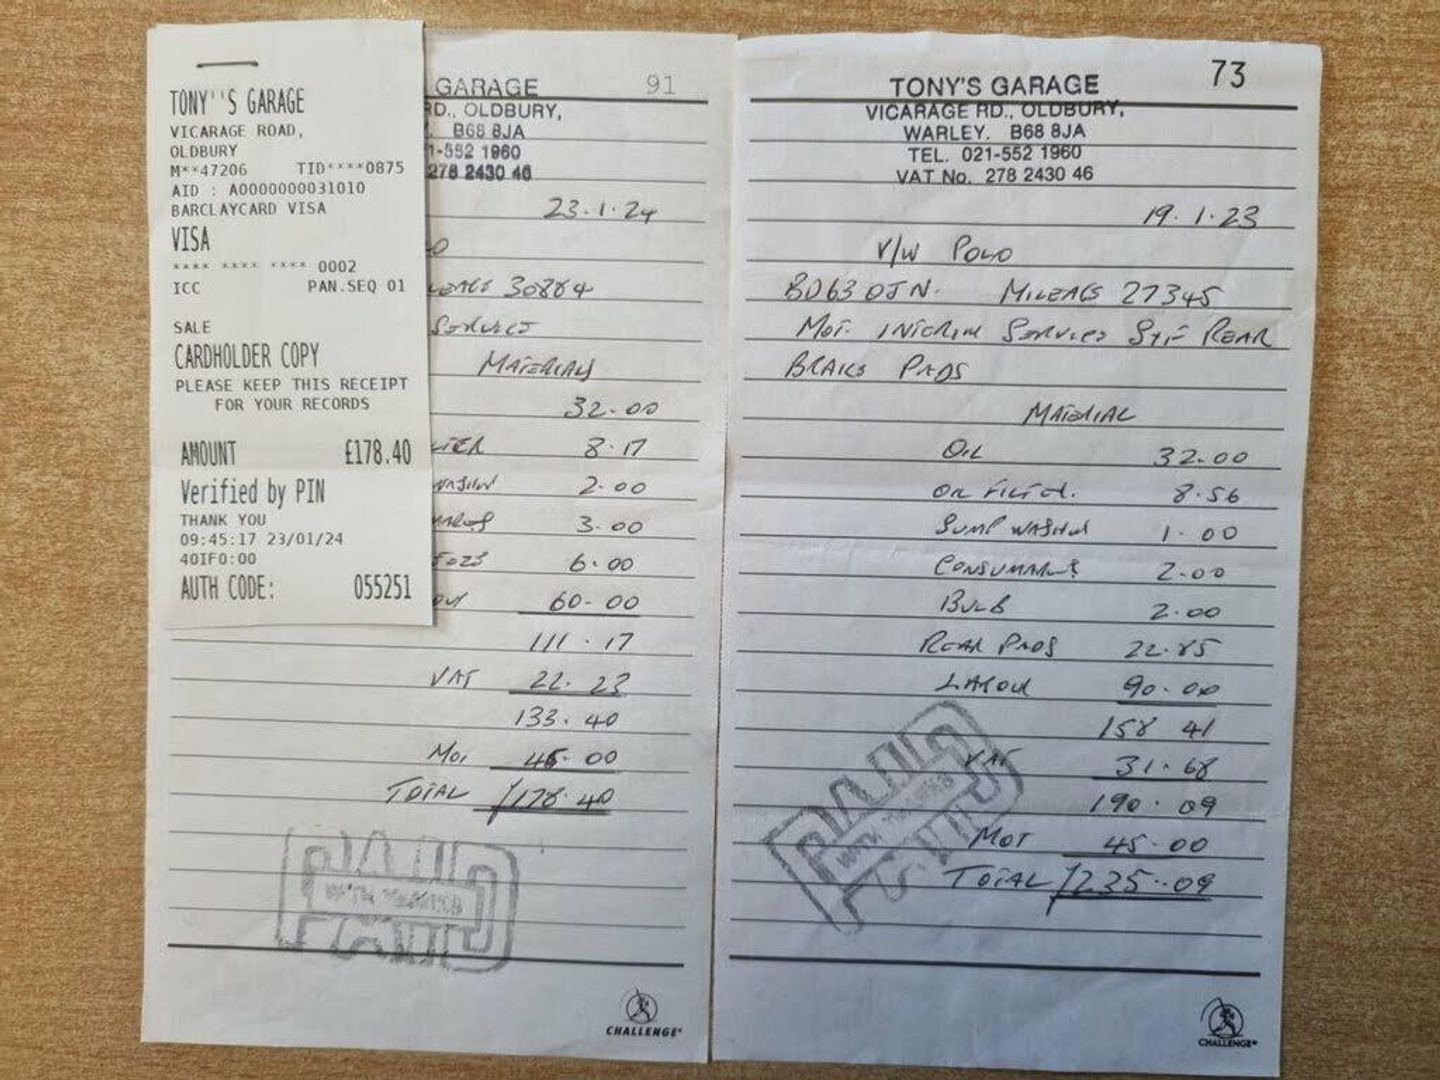 TONY''S GARAGE
VICARAGE ROAD,
OLDBURY
M**47206 TID****0875
AID : A0000000031010
BARCLAYCARD VISA
VISA
**** **** **** 0002
ICC PAN.SEQ 01
SALE
CARDHOLDER COPY
PLEASE KEEP THIS RECEIPT
FOR YOUR RECORDS
AMOUNT £178.40
Verified by PIN
THANK YOU
09:45:17 23/01/24
40IF0:00
AUTH CODE: 055251
GARAGE 91
RD., OLDBURY,
B68 8JA
1-552 1960
278 2430 46
23.1.24
30884
SERVICE
MATERIALS
32.00
8.17
2.00
3.00
6.00
60-00
111.17
VAT 22.23
133.40
MOT 45.00
TOTAL 178.40
PAID
WITH THANKS
PAID
CHALLENGE
TONY'S GARAGE 73
VICARAGE RD., OLDBURY,
WARLEY. B68 8JA
TEL. 021-552 1960
VAT No. 278 2430 46
19.1.23
V/W POLO
BD63 OJN. MILEAGE 27345
MOT. INTERIM SERVICE REAR
BRAKE PADS
MATERIAL
OIL 32.00
OIL FILTER. 8.56
SUMP WASHER 1.00
CONSUMABLES 2.00
BULB 2.00
REAR PADS 22.85
LABOUR 90.00
158 41
VAT 31.68
190.09
MOT 45.00
TOTAL 235.09
PAID
WITH THANKS
PAID
CHALLENGE